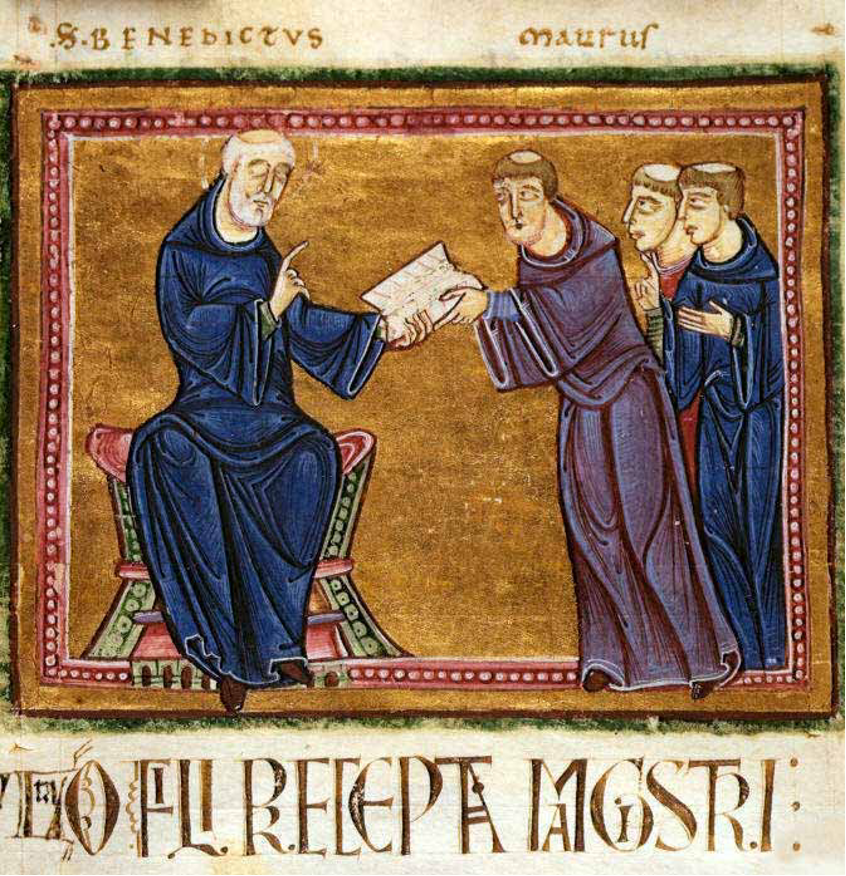 .S. BENEDICTVS
maurus
FILI RECEPTA MAGISTRI: